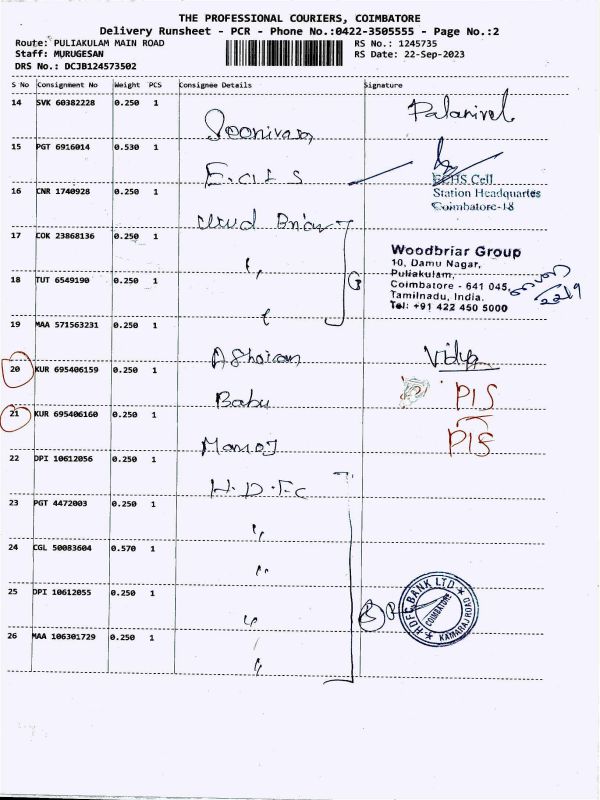 THE PROFESSIONAL COURIERS, COIMBATORE
Delivery Runsheet - PCR - Phone No.:0422-3505555 - Page No.:2
Route: PULIAKULAM MAIN ROAD RS No.: 1245735
Staff: MURUGESAN RS Date: 22-Sep-2023
DRS No.: DCJB124573502
S No Consignment No Weight PCS Consignee Details Signature
14 SVK 60382228 0.250 1 Palanivel
15 PGT 6916014 0.530 1
ECHS Cell
16 CNR 1740928 0.250 1 Station Headquarters
Coimbatore-18
17 COK 23868136 0.250 1 "
Woodbriar Group
10, Damu Nagar,
Puliakulam,
18 TUT 6549190 0.250 1 Coimbatore - 641 045,
Tamilnadu, India.
Tel: +91 422 450 5000
22/9
19 MAA 571563231 0.250 1 Vidya
20 KUR 695406159 0.250 1 Babu PIS
21 KUR 695406160 0.250 1 Manoj PIS
22 DPI 10612056 0.250 1 H.D.F.C
23 PGT 4472003 0.250 1 "
24 CGL 50083604 0.570 1 "
25 DPI 10612055 0.250 1 "
HDFC BANK LTD
COIMBATORE
KAMARAJ ROAD
26 MAA 106301729 0.250 1 "